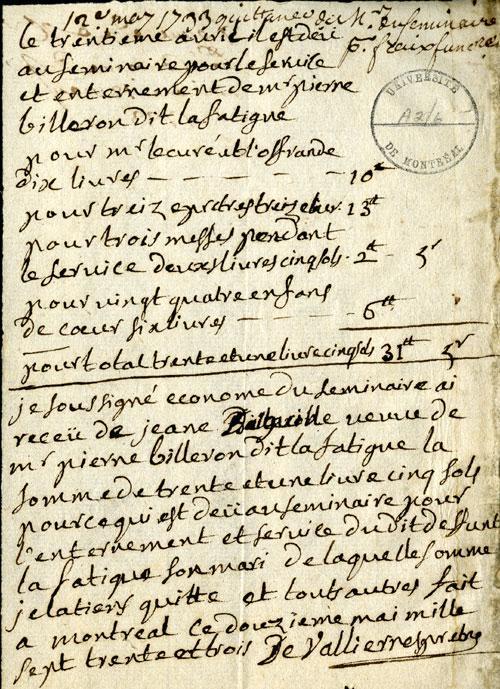 12e may 1733 quittance de Mr du seminaire
pr fraux funere
le trentieme avril il est deu
au seminaire pour le service
et enterrement de mr pierre
billeron dit la fatigue
pour mr le curé et l'offrande
dix livres — — — — 10
pour treiz prestres treiz livr. 13tt
pour trois messes pendant
le service deuxs livres cinq sols - 2tt 5s
pour vingt quatre enfans
de cœur six livres — — — 6tt
pour total trente et une livre cinq sols 31tt 5s
je sous signé econome du seminaire ai
receü de jeane veuve de
mr pierre billeron dit la fatigue la
somme de trente et une livre cinq sols
pour ce qui est deü au seminaire pour
l'enterrement et service du dit defunt
la fatigue son mari de laquelle somme
je la tiens quitte et tout autres fait
a montreal ce douzieme mai mille
sept trente et trois De Vallierres pretre
UNIVERSITÉ
A2/6
DE MONTRÉAL